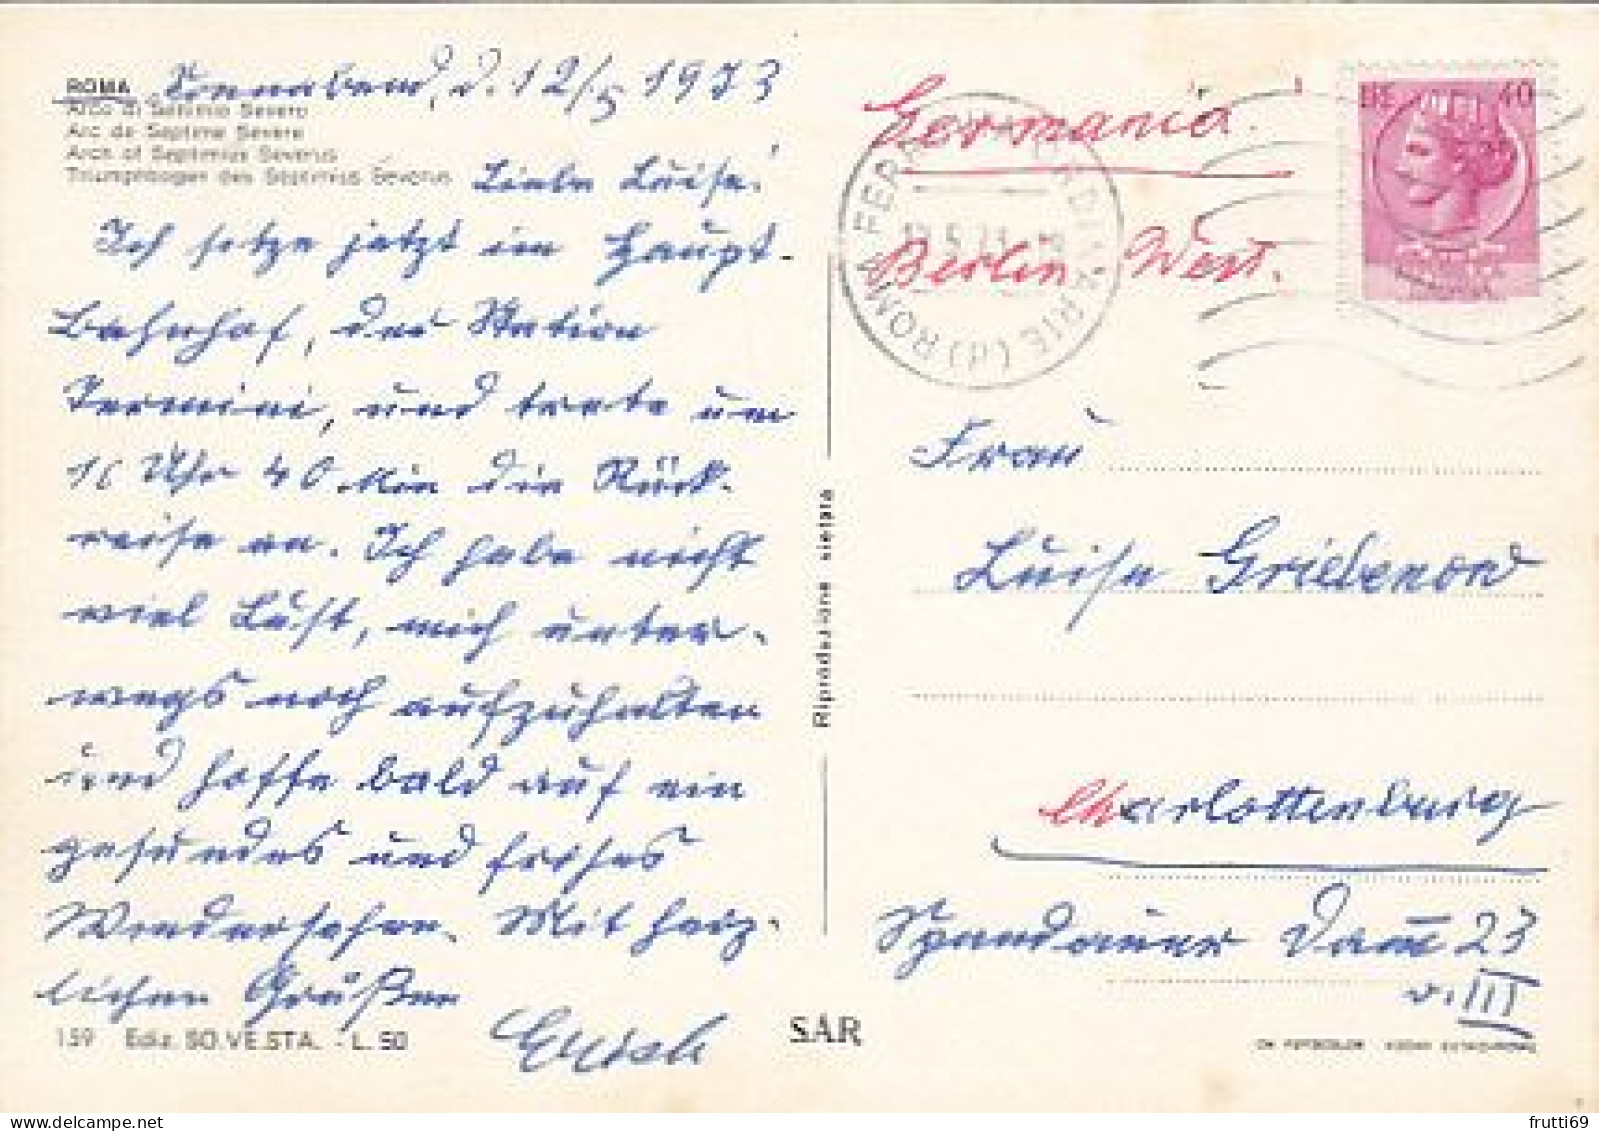 ROMA
Arco di Settimio Severo
Arc de Septime Severe
Arch of Septimius Severus
Triumphbogen des Septimius Severus
Sonnabend, d. 12/5 1973
Liebe Luise!
Ich sitze jetzt im Haupt-
bahnhof, der Station
Termini, und trete um
Uhr 40 Min die Rück-
reise an. Ich habe nicht
viel Lust, mich unter-
wegs noch aufzuhalten
und hoffe bald auf ein
gesundes und frohes
Wiedersehen. Mit herz-
lichen Grüßen
159 Ediz. SO.VE.STA. - L. 50
Riproduzione vietata
SAR
Germania
Berlin West.
40
ROMA FERROVIA
Frau
Luise Griebenow
Charlottenburg
Spandauer Damm 23
v. III
frutti69